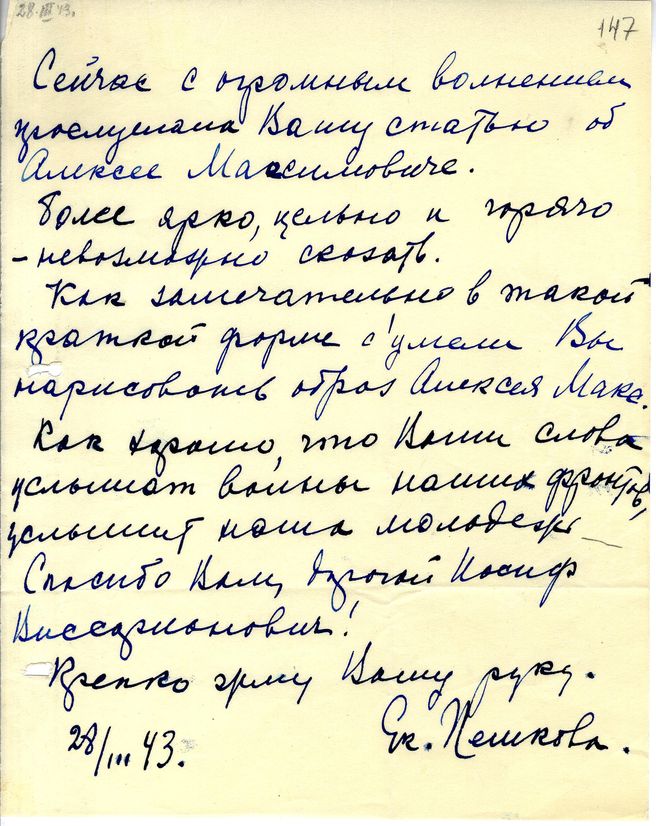 28.III.43.
147
Сейчас с огромным волнением
прослушала Вашу статью об
Алексее Максимовиче.
Более ярко, цельно и горячо
– невозможно сказать.
Как замечательно в такой
краткой форме с'умели Вы
нарисовать образ Алексея Макс.
Как хорошо, что Ваши слова
услышат воины наших фронтов,
услышит наша молодежь
Спасибо Вам, дорогой Иосиф
Виссарионович!
Крепко жму Вашу руку.
28/III 43.
Ек. Пешкова.